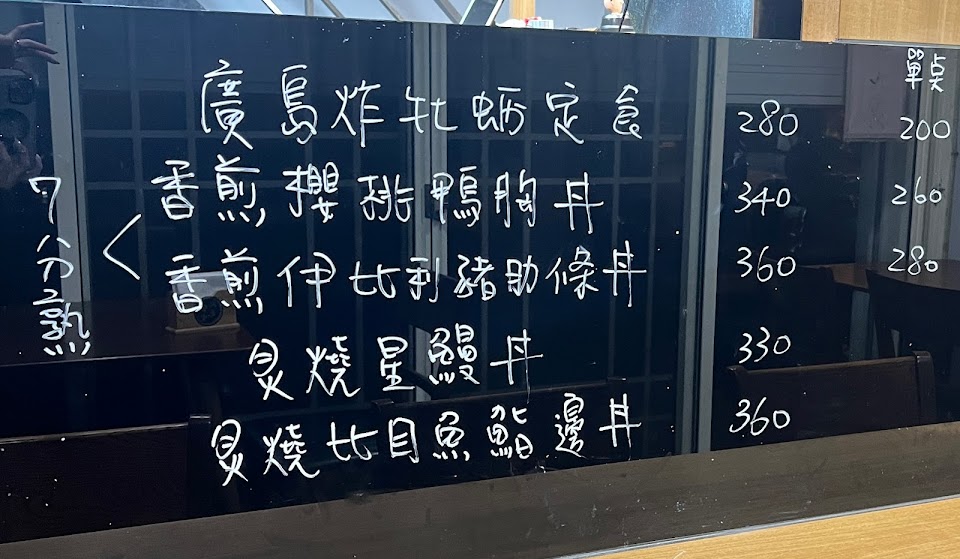 單点
廣島炸牡蛎定食 280 200
香煎櫻桃鴨胸丼 340 260
7分熟 <
香煎伊比利豬助條丼 360 280
炙燒星鰻丼 330
炙燒比目魚鮨邊丼 360